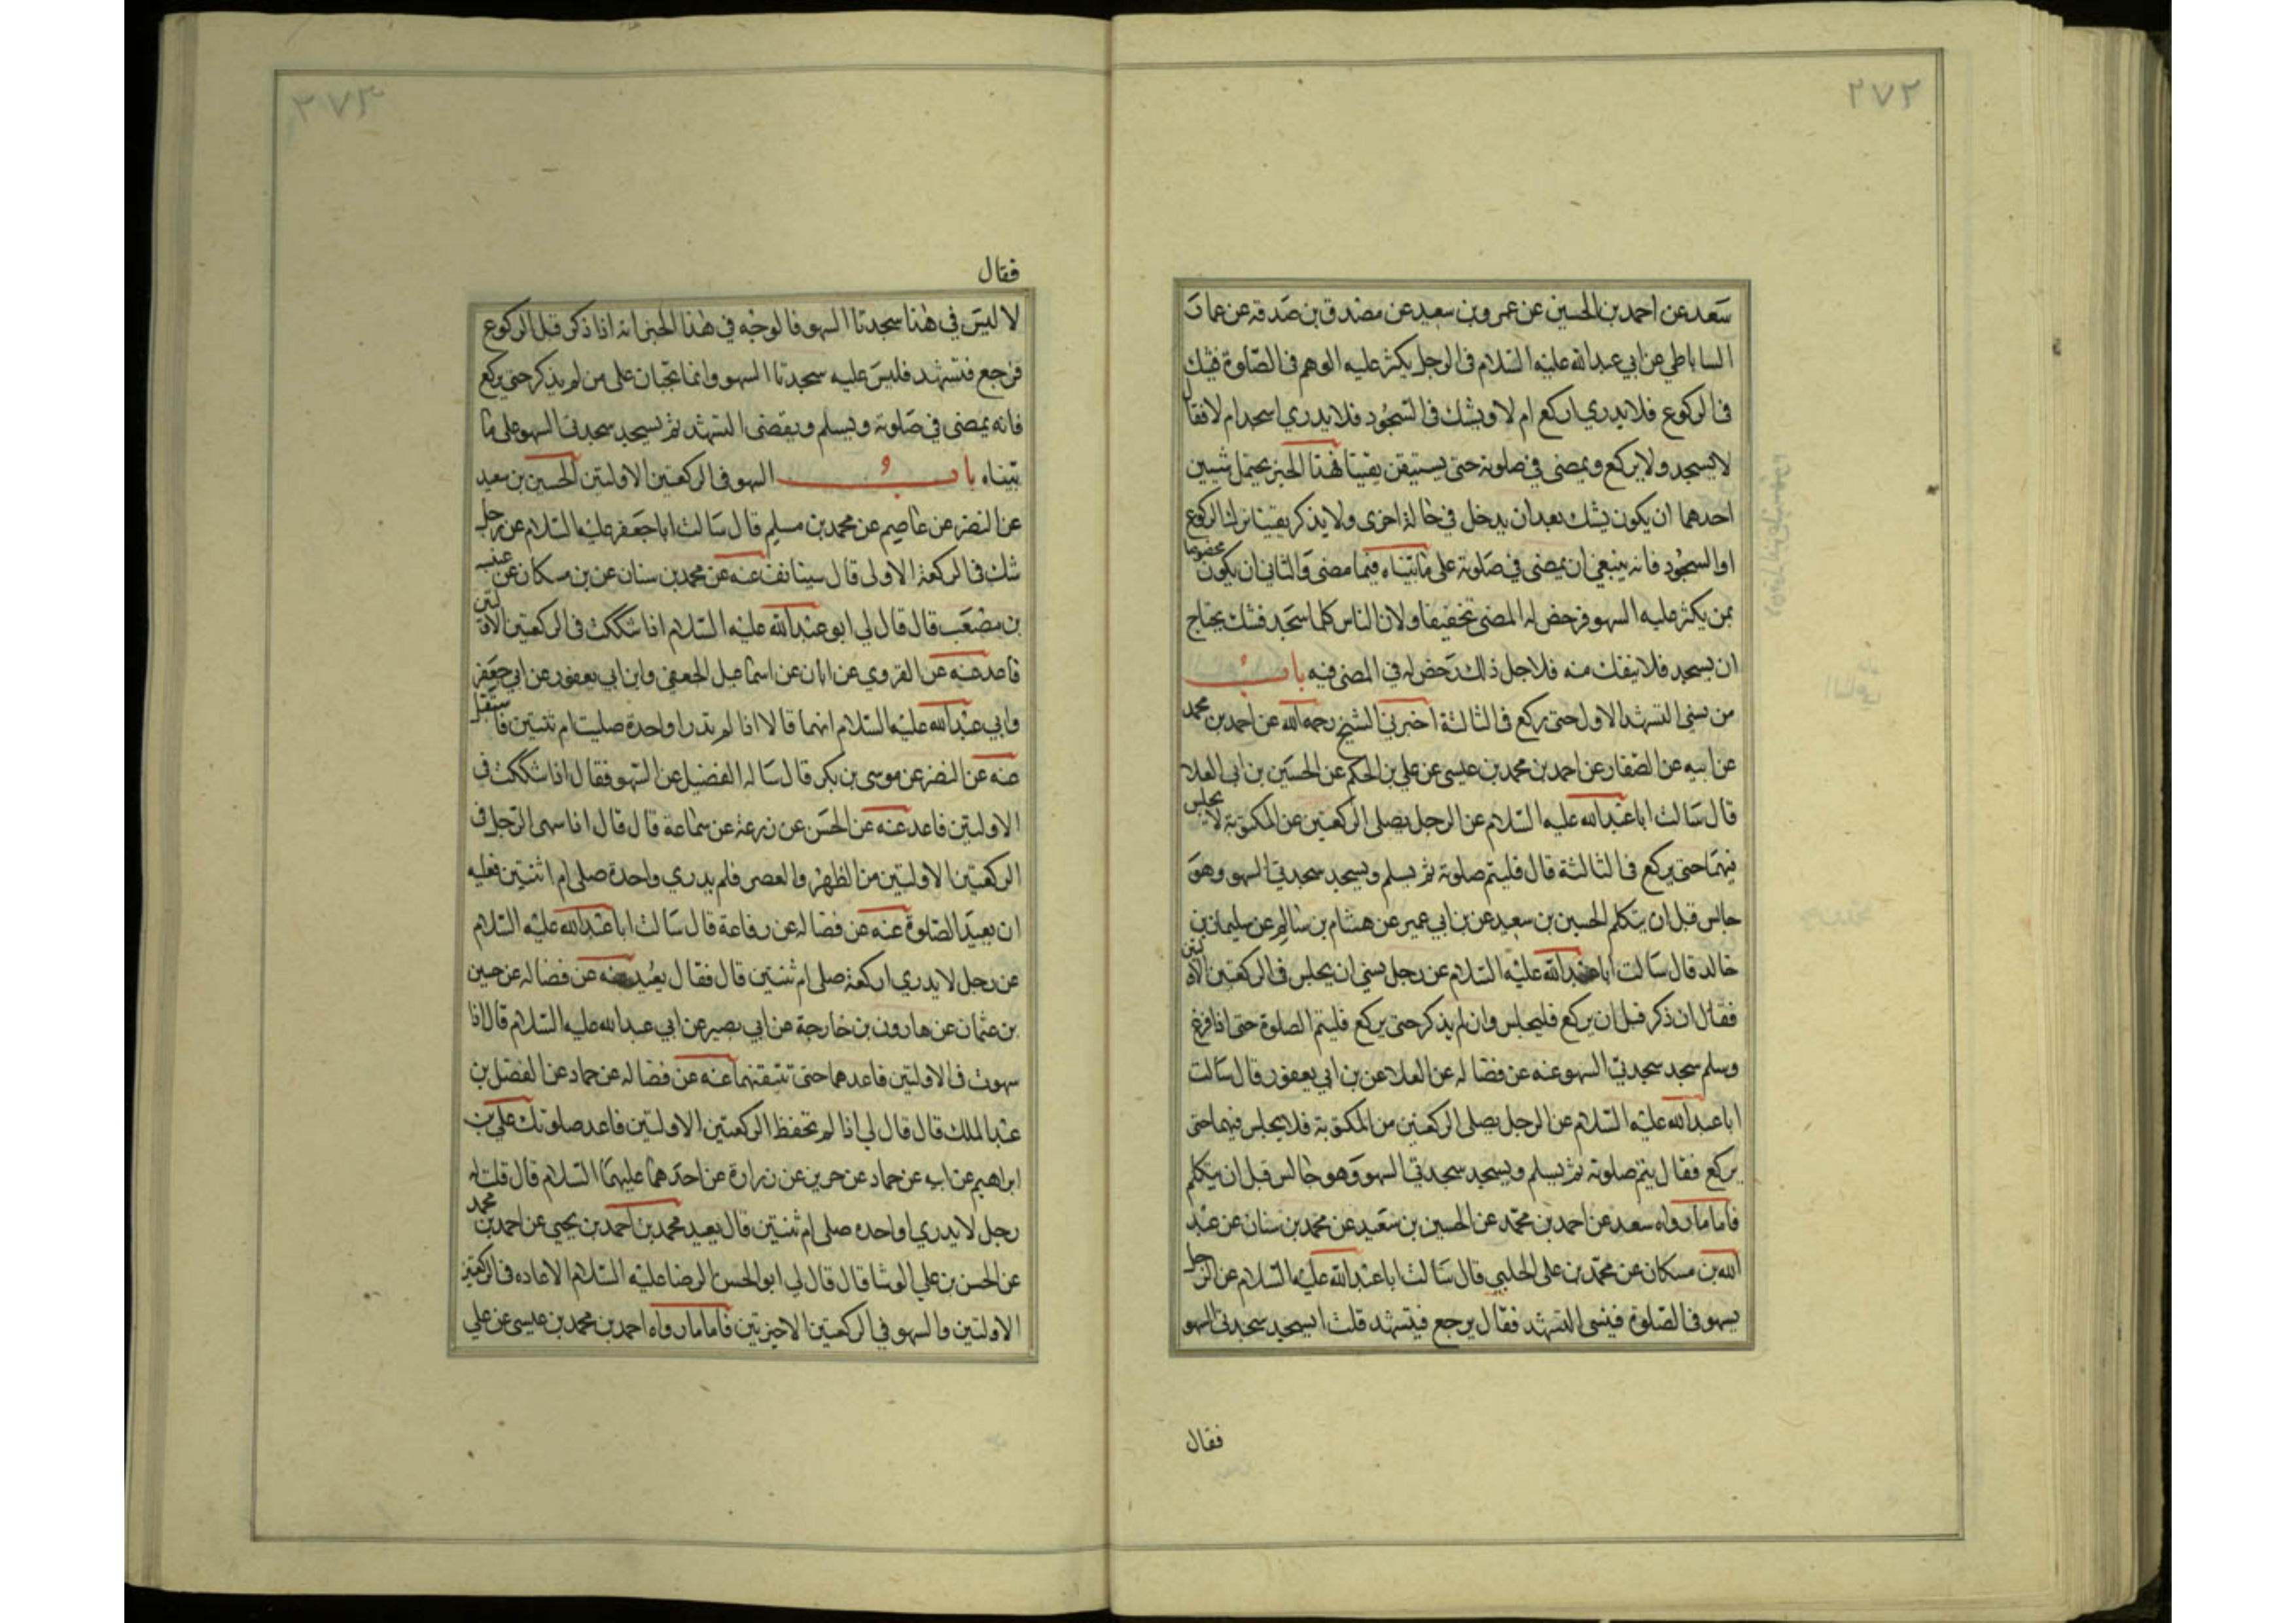 ٢٧٢
سعد عن احمد بن الحسين عن عمرو بن سعيد عن مصدق بن صدقه عن عمار
الساباطي عن ابي عبد الله عليه السلام في الرجل يكثر عليه الوهم في الصلوة فيشك
في الركوع فلا يدري اركع ام لا ويشك في السجود فلا يدري اسجد ام لا فقال
لا يسجد ولا يركع ويمضي في صلوته حتى يستيقن يقينا فهذا الخبر يحتمل شيئين
احدهما ان يكون يشك بعد ان يدخل في حالة اخرى ولا يذكر يقينا ترك الركوع
او السجود فانه ينبغي ان يمضي في صلوته على ما بيناه فيما مضى والثاني ان يكون مخصوصا
بمن يكثر عليه السهو فرخص له المضي تخفيفا ولان الناس كلما سجد فشك يحتاج
ان يسجد فلا ينفك منه فلاجل ذلك رخص له في المضي فيه باب
من نسي التشهد الاول حتى ركع في الثالثة اخبرني الشيخ رحمه الله عن احمد بن محمد
عن ابيه عن الصفار عن احمد بن محمد بن عيسى عن علي بن الحكم عن الحسين بن ابي العلا
قال سالت ابا عبد الله عليه السلام عن الرجل يصلي الركعتين عن المكتوبة لا يجلس
فيهما حتى يركع في الثالثة قال فليتم صلوته ثم يسلم ويسجد سجدتي السهو وهو
جالس قبل ان يتكلم الحسين بن سعيد عن بن ابي عمير عن هشام بن سالم عن سليمان بن
خالد قال سالت ابا عبد الله عليه السلام عن رجل نسي ان يجلس في الركعتين الاولتين
فقال ان ذكر قبل ان يركع فليجلس وان لم يذكر حتى يركع فليتم الصلوة حتى اذا فرغ
وسلم سجد سجدتي السهو عنه عن فضاله عن العلا عن بن ابي يعفور قال سالت
ابا عبد الله عليه السلام عن الرجل يصلي الركعتين من المكتوبة فلا يجلس فيهما حتى
يركع فقال يتم صلوته ثم يسلم ويسجد سجدتي السهو وهو جالس قبل ان يتكلم
فاما ما رواه سعد عن احمد بن محمد عن الحسين بن سعيد عن محمد بن سنان عن عبد
الله بن مسكان عن محمد بن علي الحلبي قال سالت ابا عبد الله عليه السلام عن الرجل
يسهو في الصلوة فينسى التشهد فقال يرجع فيتشهد قلت ايسجد سجدتي السهو
فقال
٢٧٣
فقال
لا ليس في هذا سجدتا السهو فالوجه في هذا الخبر انه اذا ذكر قبل الركوع
فرجع فتشهد فليس عليه سجدتا السهو وانما تجبان على من لم يذكر حتى يركع
فانه يمضي في صلوته ويسلم ويقضي التشهد ثم يسجد سجدتي السهو على ما
بيناه باب السهو في الركعتين الاولتين الحسين بن سعيد
عن النضر عن عاصم عن محمد بن مسلم قال سالت ابا جعفر عليه السلام عن رجل
شك في الركعة الاولى قال يستانف عنه عن محمد بن سنان عن بن مسكان عن عنبسه
بن مصعب قال قال لي ابو عبد الله عليه السلام اذا شككت في الركعتين الاولتين
فاعد عنه عن القروي عن ابان عن اسماعيل الجعفي وابن ابي يعفور عن ابي جعفر
وابي عبد الله عليه السلام انهما قالا اذا لم تدر اواحدة صليت ام ثنتين فاستقبل
عنه عن النضر عن موسى بن بكر قال ساله الفضيل عن السهو فقال اذا شككت في
الاولتين فاعد عنه عن الحسن عن زرعة عن سماعة قال قال اذا سهى الرجل في
الركعتين الاولتين من الظهر والعصر فلم يدري واحدة صلى ام اثنتين فعليه
ان يعيد الصلوة عنه عن فضاله عن رفاعة قال سالت ابا عبد الله عليه السلام
عن رجل لا يدري اركعة صلى ام ثنتين قال فقال يعيد عنه عن فضاله عن حسين
بن عثمان عن هارون بن خارجة عن ابي بصير عن ابي عبد الله عليه السلام قال اذا
سهوت في الاولتين فاعدهما حتى تثبتهما عنه عن فضاله عن حماد عن الفضل بن
عبد الملك قال قال لي اذا لم تحفظ الركعتين الاولتين فاعد صلوتك علي بن
ابراهيم عن ابيه عن حماد عن حريز عن زرارة عن احدهما عليهما السلام قال قلت له
رجل لا يدري اواحده صلى ام ثنتين قال يعيد محمد بن احمد بن يحيى عن احمد بن محمد
عن الحسن بن علي الوشا قال قال لي ابو الحسن الرضا عليه السلام الاعاده في الركعتين
الاولتين والسهو في الركعتين الاخيرتين فاما ما رواه احمد بن محمد بن عيسى عن علي